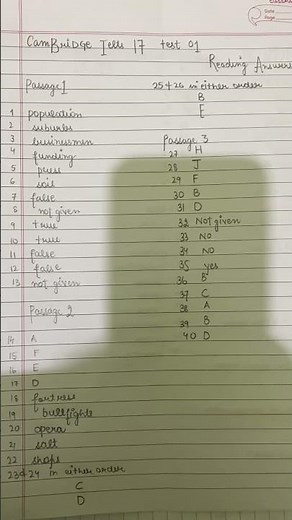 Date
Page
CamBRidGe Iells 17 test 01
Reading Answers
Passage 1
1 population
2 suburbs
3 businessmen
4 funding
5 press
6 soil
7 false
8 not given
9 true
10 true
11 false
12 false
13 not given
Passage 2
14 A
15 F
16 E
17 D
18 fortress
19 bullfights
20 opera
21 salt
22 shops
23&24 in either order
C
D
25&26 in either order
B
E
Passage 3
27 H
28 J
29 F
30 B
31 D
32 Not given
33 NO
34 NO
35 yes
36 B
37 C
38 A
39 B
40 D